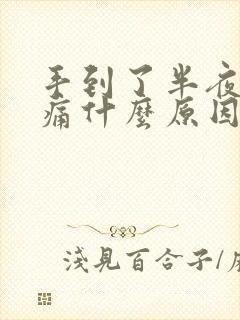 手到了半夜
痛什麼原因
淺見百合子/